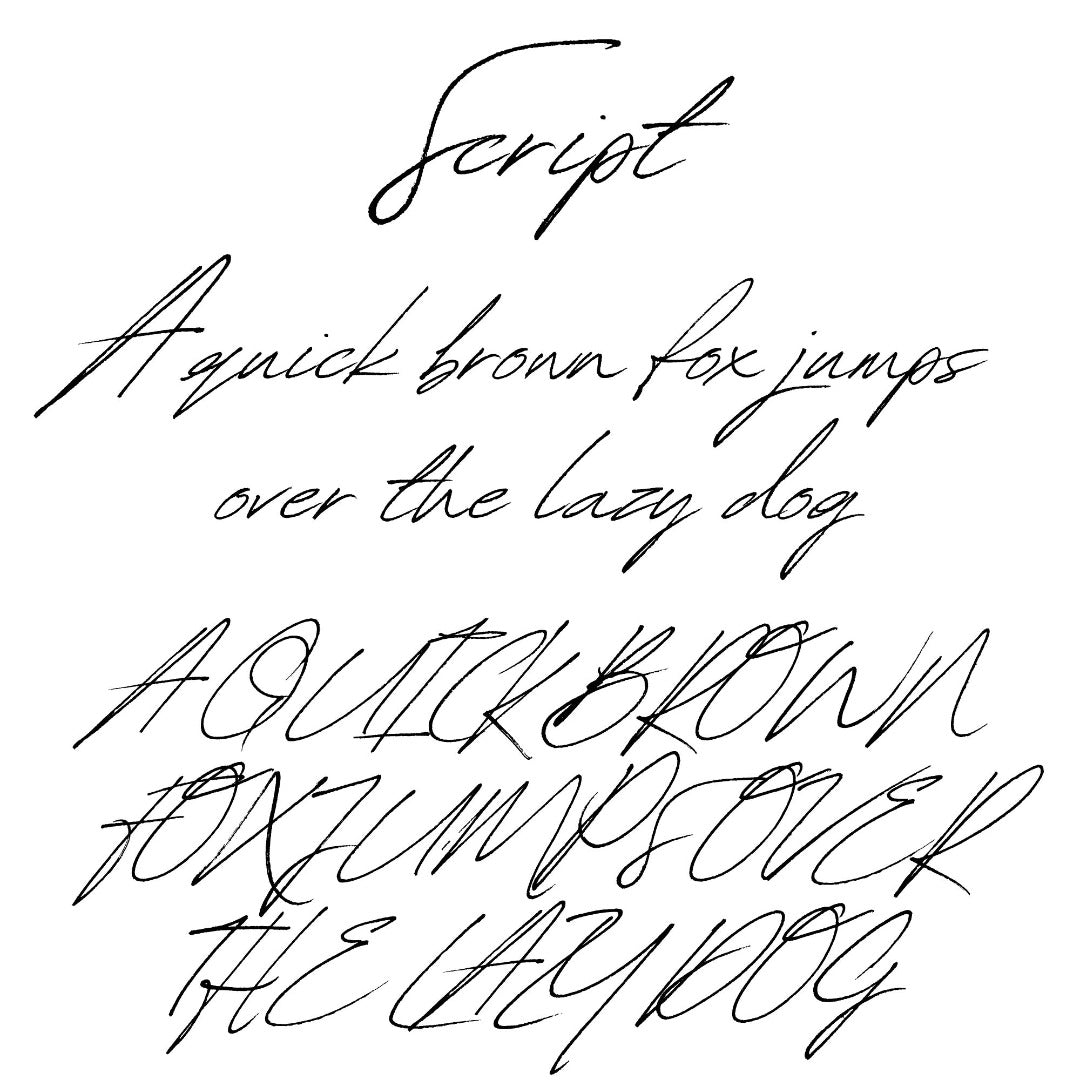 Script
A quick brown fox jumps
over the lazy dog
A QUICK BROWN
FOX JUMPS OVER
THE LAZY DOG